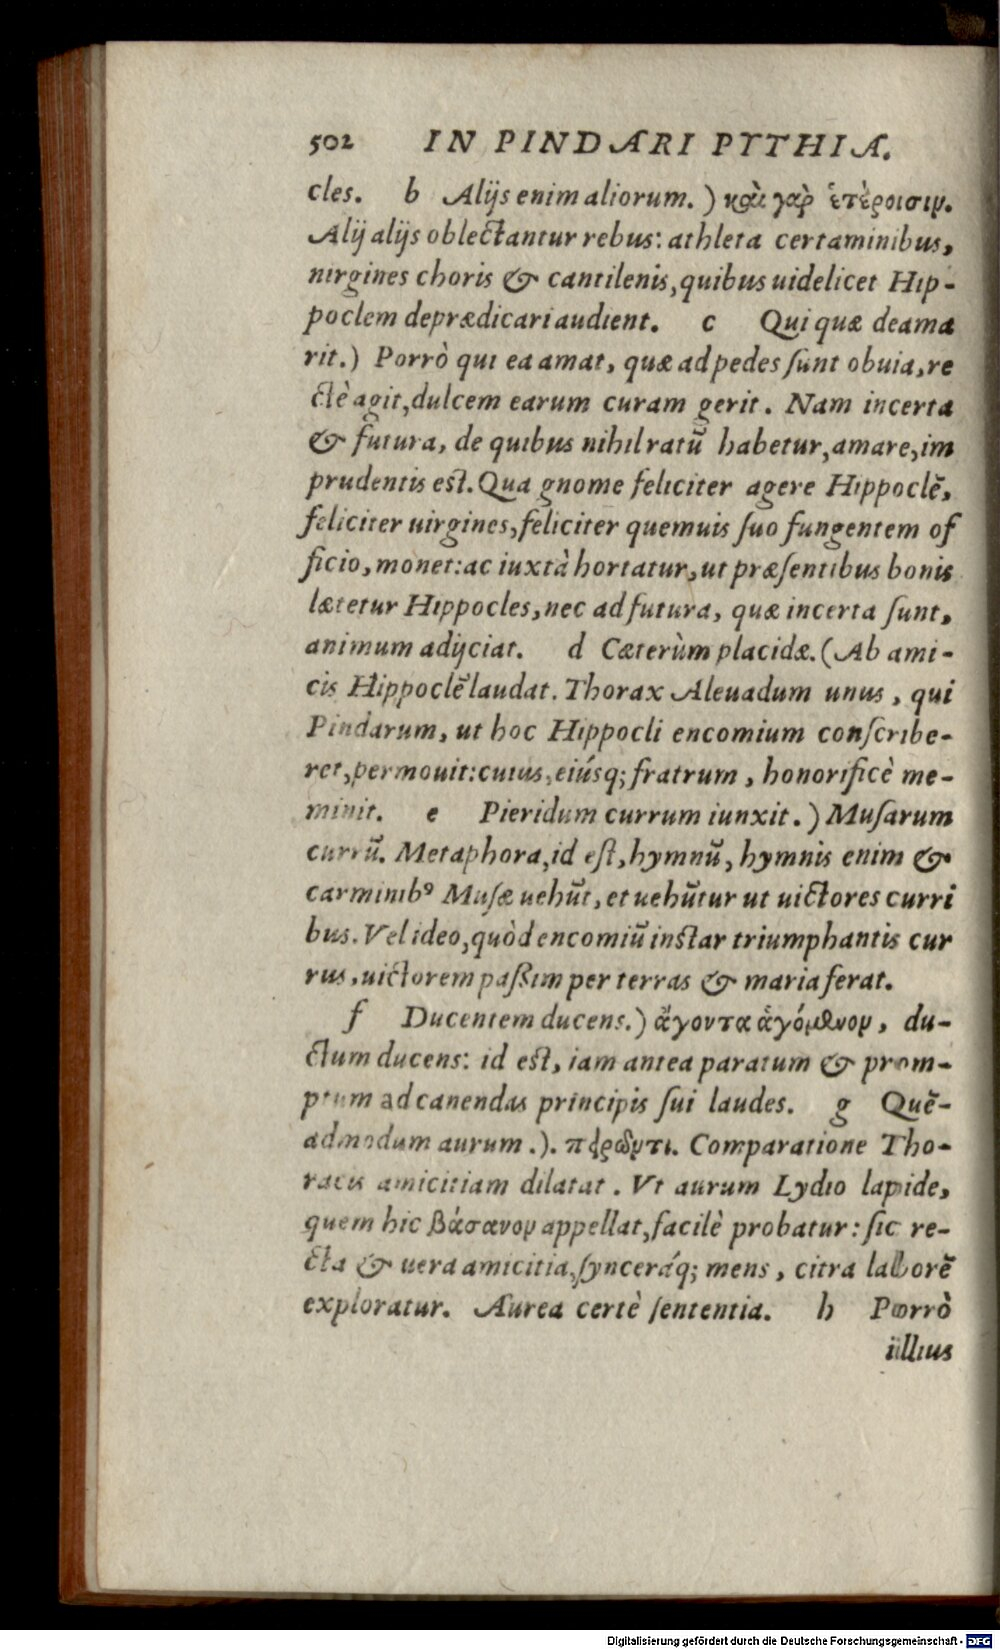 502 IN PINDARI PYTHIA.
cles. b Alijs enim aliorum. ) καὶ γαρ̀ ἑτέροισιν.
Alij alijs oblectantur rebus: athleta certaminibus,
uirgines choris & cantilenis, quibus uidelicet Hip-
poclem deprædicari audient. c Qui quæ deama
rit.) Porrò qui ea amat, quæ ad pedes ſunt obuia, re
ctè agit, dulcem earum curam gerit. Nam incerta
& futura, de quibus nihil ratũ habetur, amare, im
prudentis est. Qua gnome feliciter agere Hippoclẽ,
feliciter uirgines, feliciter quemuis ſuo fungentem of
ficio, monet: ac iuxtà hortatur, ut præſentibus bonis
lætetur Hippocles, nec ad futura, quæ incerta ſunt,
animum adijciat. d Cæterùm placidæ. (Ab ami-
cis Hippoclẽ laudat. Thorax Aleuadum unus, qui
Pindarum, ut hoc Hippocli encomium conſcribe-
ret, permouit: cuius, eiúsq; fratrum, honorificè me-
minit. e Pieridum currum iunxit. ) Muſarum
currũ. Metaphora, id eſt, hymnũ, hymnis enim &
carminibꝰ Muſæ uehũt, et uehũtur ut uictores curri
bus. Vel ideo, quòd encomiũ instar triumphantis cur
rus, uictorem paßim per terras & maria ferat.
f Ducentem ducens.) ἄγοντα ἀγόμενον, du-
ctum ducens: id est, iam antea paratum & prom-
ptum ad canendas principis ſui laudes. g Quẽ-
admodum aurum.). πειρῶντι. Comparatione Tho-
racis amicitiam dilatat. Vt aurum Lydio lapide,
quem hic βάσανον appellat, facilè probatur: ſic re-
cta & uera amicitia, ſynceráq; mens, citra laborẽ
exploratur. Aurea certè ſententia. h Porrò
illius
Digitalisierung gefördert durch die Deutsche Forschungsgemeinschaft - DFG